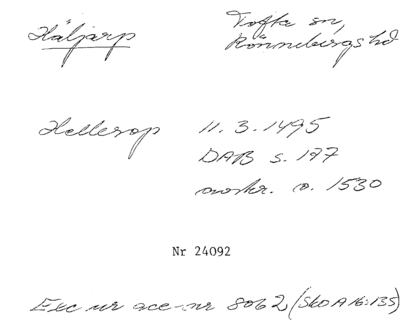 Häljarp
Tofta sn,
Rönnebergs hd
Hellerop 11.3.1495
DAB s. 177
avskr. o. 1530
Nr 24092
Exc ur acc-nr 8062 (SkO A16:135)